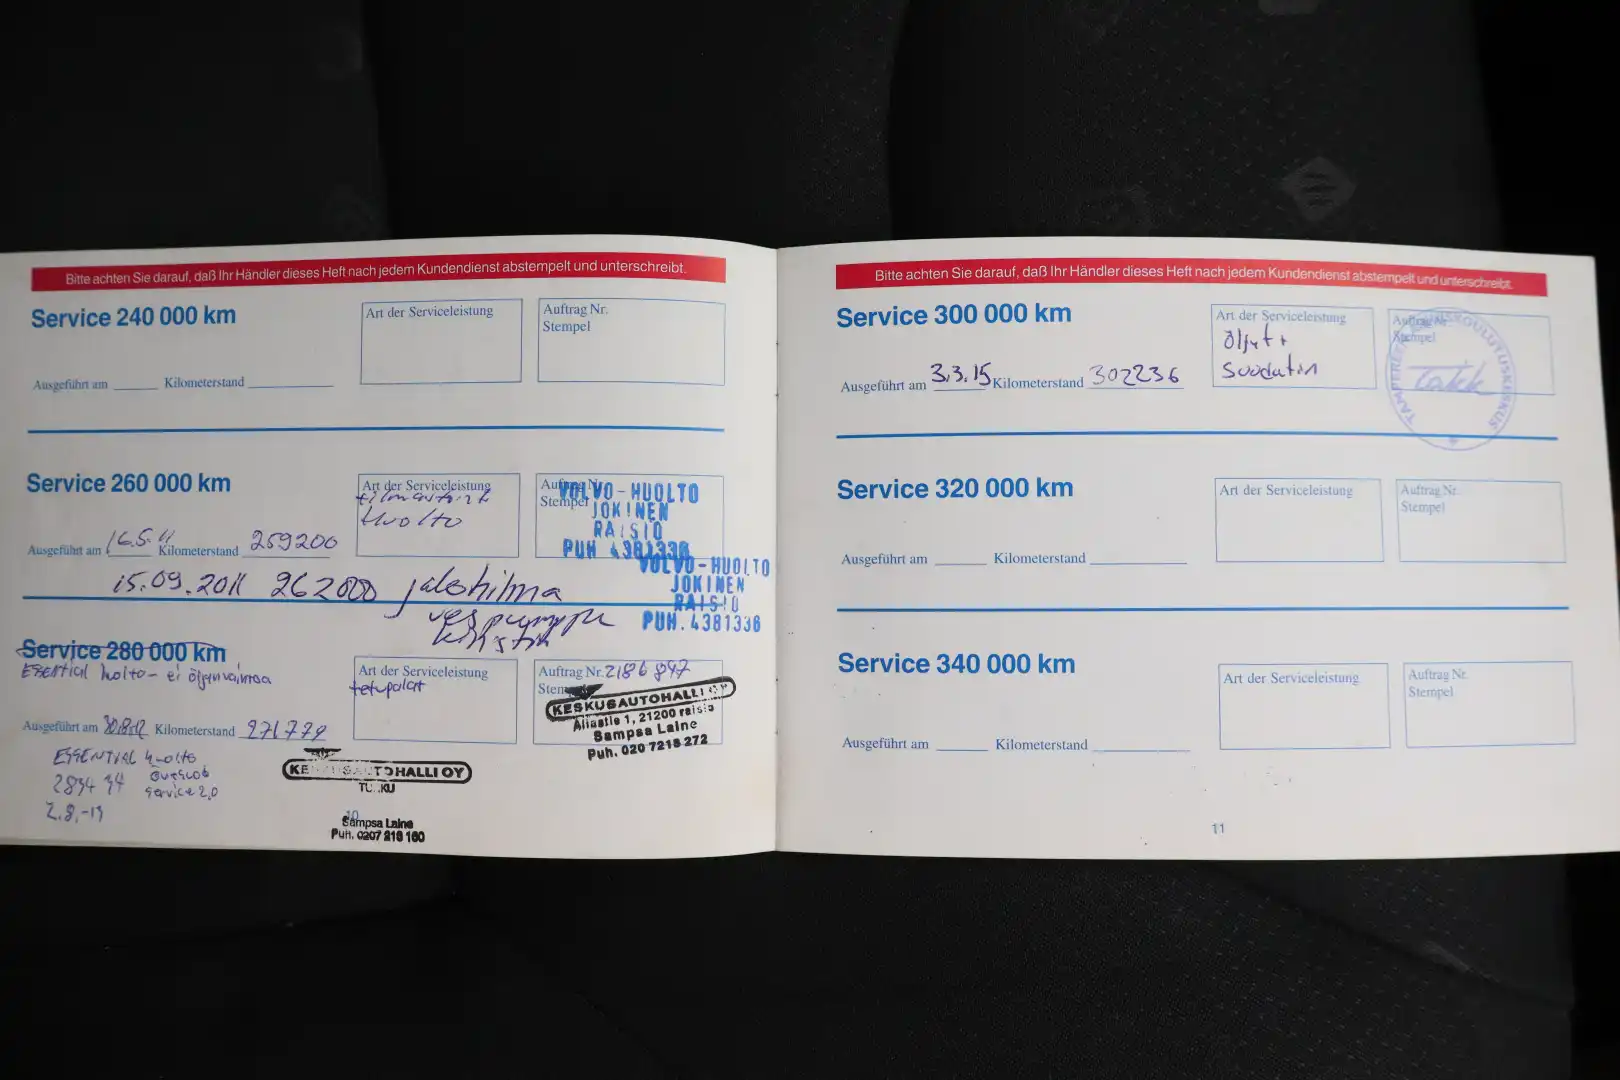 Bitte achten Sie darauf, daß Ihr Händler dieses Heft nach jedem Kundendienst abstempelt und unterschreibt.
Service 240 000 km
Art der Serviceleistung
Auftrag Nr.
Stempel
Ausgeführt am
Kilometerstand
Service 260 000 km
Art der Serviceleistung
Huolto
Auftrag Nr.
Stempel
VOLVO-HUOLTO
JOKINEN
RAISIO
PUH 4381336
Ausgeführt am 16.5.11 Kilometerstand 259200
VOLVO-HUOLTO
JOKINEN
RAISIO
PUH. 4381336
15.09.2011 262000 jakohihna
vespumppu
Service 280 000 km
ESSENTIAL huolto - ei öljynvaihtoa
Art der Serviceleistung
Auftrag Nr. 2186897
KESKUSAUTOHALLI OY
Allastie 1, 21200 raisio
Sampsa Laine
Puh. 020 7218 272
Ausgeführt am Kilometerstand 271779
ESSENTIAL huolto
service 2.0
KESKUSAUTOHALLI OY
TURKU
Sampsa Laine
Puh. 0207 218 160
10
Bitte achten Sie darauf, daß Ihr Händler dieses Heft nach jedem Kundendienst abstempelt und unterschreibt.
Service 300 000 km
Art der Serviceleistung
Öljyt +
Suodatin
Auftrag Nr.
Stempel
Ausgeführt am 3.3.15 Kilometerstand 302236
Service 320 000 km
Art der Serviceleistung
Auftrag Nr.
Stempel
Ausgeführt am
Kilometerstand
Service 340 000 km
Art der Serviceleistung
Auftrag Nr.
Stempel
Ausgeführt am
Kilometerstand
11